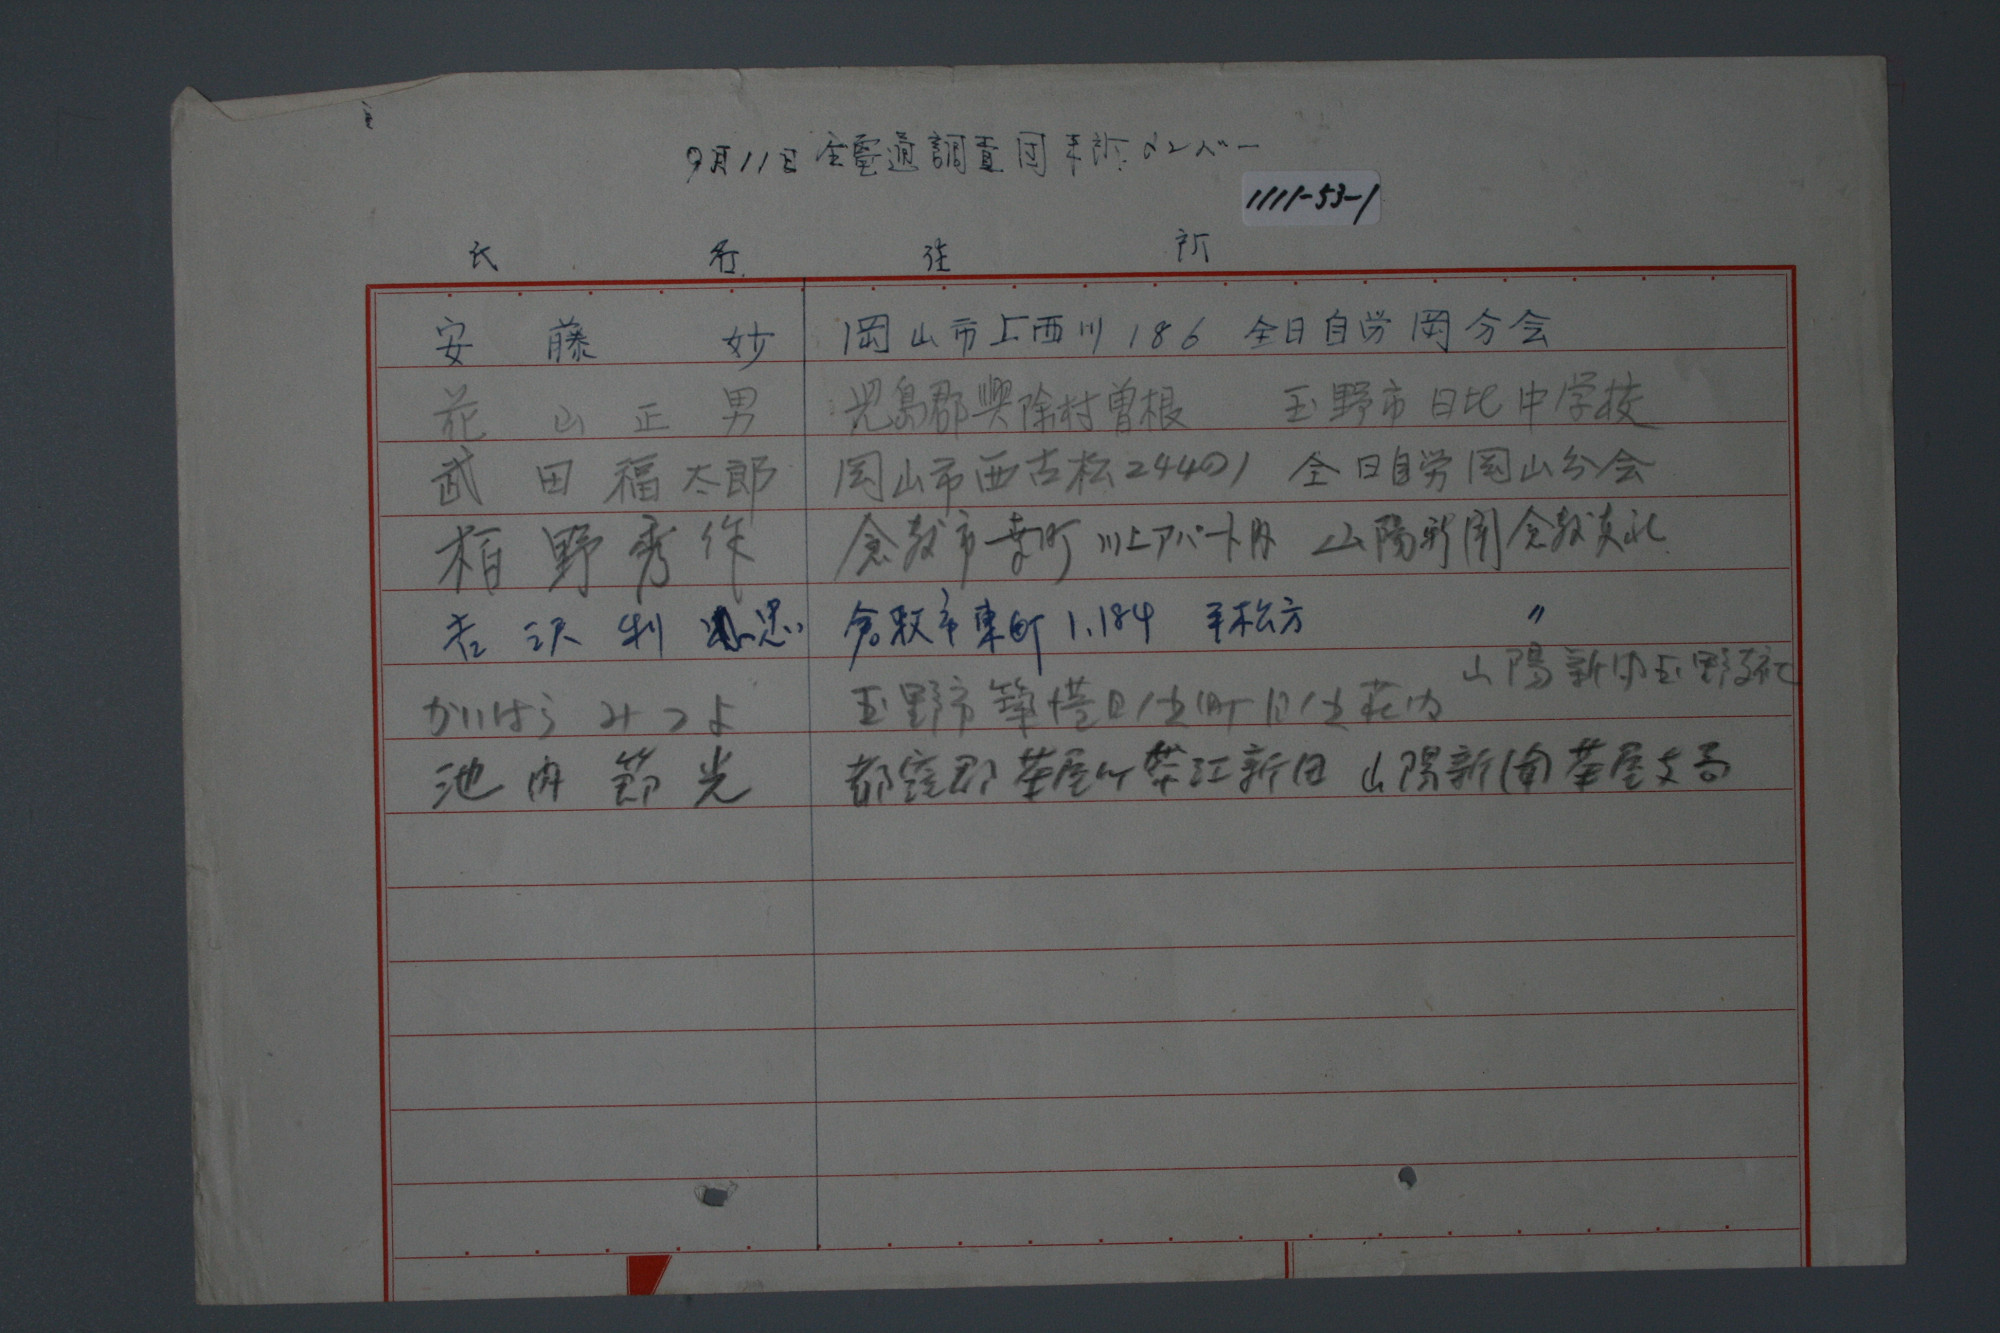 9月11日 全電通調査団来所メンバー
1111-53-1
氏 名 住 所
安藤 妙 岡山市上西川186 全日自労岡分会
花山正男 児島郡興除村曽根 玉野市日比中学校
武田福太郎 岡山市西古松244の1 全日自労岡山分会
柏野秀作 倉敷市幸町川上アパート内 山陽新聞倉敷支社
吉沢利忠 倉敷市東町1,184 平松方 〃
山陽新聞玉野支社
かいはらみつよ 玉野市築港日生町日生荘内
池内節光 都窪郡茶屋町帯江新田 山陽新聞茶屋支局